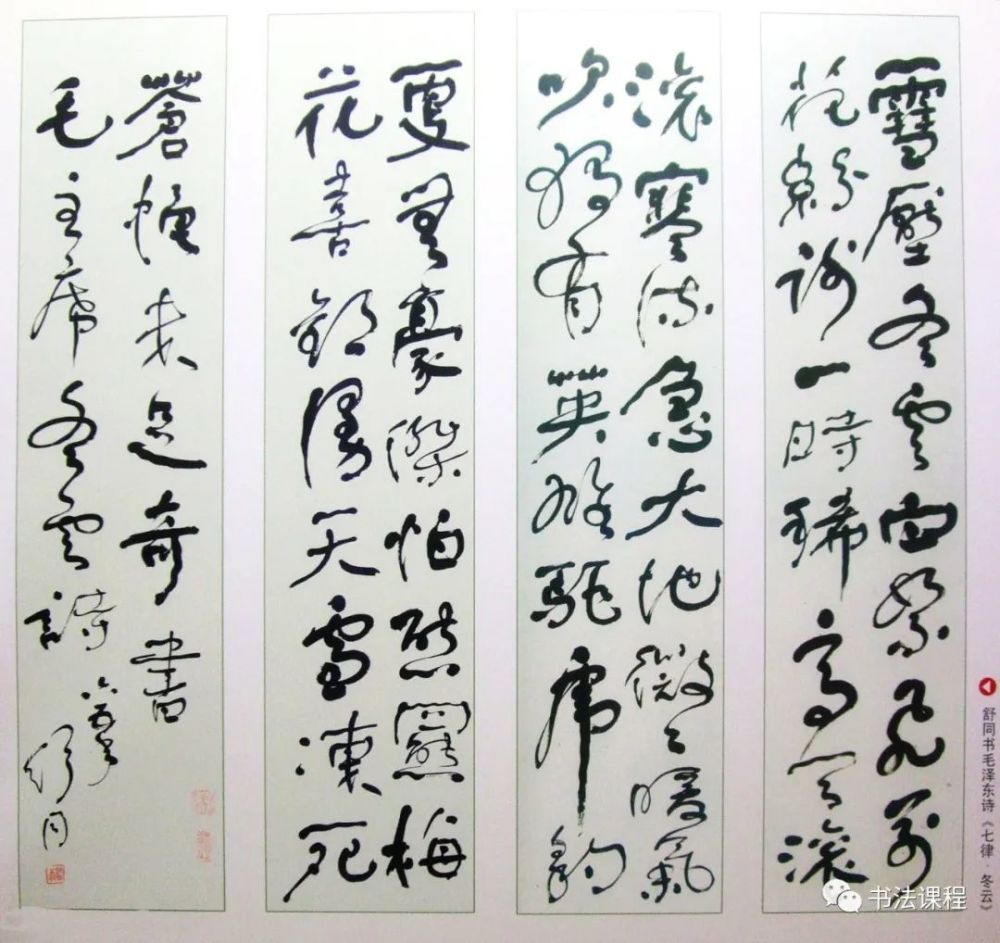 雪壓冬雲白絮飛萬
花紛謝一時稀高天滚
滚寒流急大地微〻暖氣
吹獨有英雄驅虎豹
更無豪傑怕熊羆梅
花喜歡漫天雪凍死
蒼蠅未足奇 書
毛主席冬雲詩 舒同
舒同书毛泽东诗《七律·冬云》
书法课程